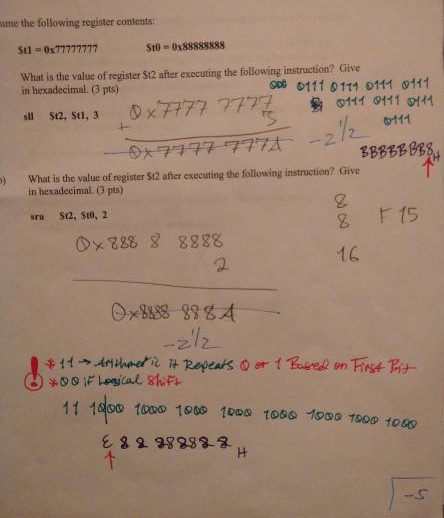 ume the following register contents:
$t1 = 0x77777777 $t0 = 0x88888888
What is the value of register $t2 after executing the following instruction? Give
in hexadecimal. (3 pts)
0111 0111 0111 0111
0111 0111 0111
0111
sll $t2, $t1, 3
0x7777 7777
+ 3
0x7777 777A
-2 1/2
BBBBBBB8H
What is the value of register $t2 after executing the following instruction? Give
in hexadecimal. (3 pts)
sra $t2, $t0, 2
8
8 F 15
16
0x888 8 8888
2
0x8888 888A
-2 1/2
* 11 → Arithmetic it Repeats 0 or 1 Based on First Bit
* 00 if Logical Shift
11 1000 1000 1000 1000 1000 1000 1000 1000
E 8 2 88888 H
-5